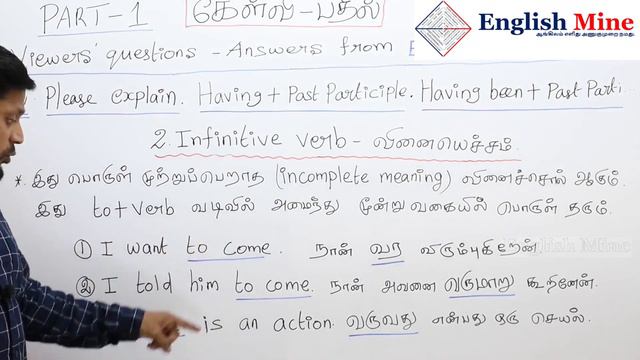 PART-1 கேள்வி-பதில்
English Mine
ஆங்கிலம் எளிது அணுகுமுறை நமது.
Viewers' questions - Answers from E
Please explain. Having + Past Participle. Having been + Past Parti...
2. Infinitive verb - வினையெச்சம்.
* இது பொருள் முற்றுப்பெறாத (incomplete meaning) வினைச்சொல் ஆகும்.
இது to+verb வடிவில் அமைந்து மூன்று வகையில் பொருள் தரும்.
① I want to come. நான் வர விரும்புகிறேன்.
English Mine
② I told him to come. நான் அவனை வருமாறு கூறினேன்.
is an action. வருவது என்பது ஒரு செயல்.